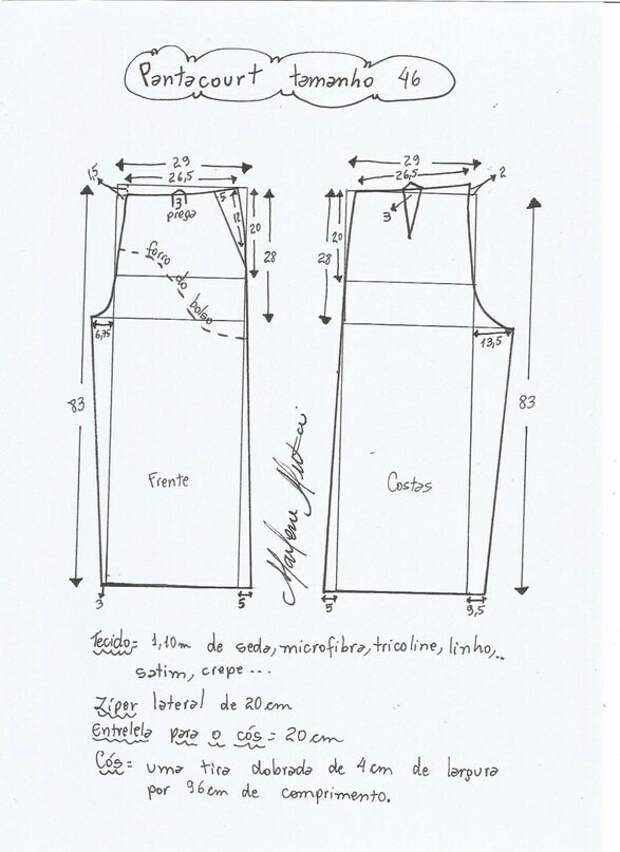 Pantacourt tamanho 46
29
26,5
1,5
3
prega
5
12
20
28
forro do bolso
83
6,75
Frente
3
5
29
26,5
2
3
20
28
13,5
83
Costas
5
9,5
Marlene Mukai
Tecido= 1,10m de seda, microfibra, tricoline, linho,..
satim, crepe...
Zíper lateral de 20cm
Entrelela para o cós = 20cm
Cós= uma tira dobrada de 4cm de largura
por 96cm de comprimento.